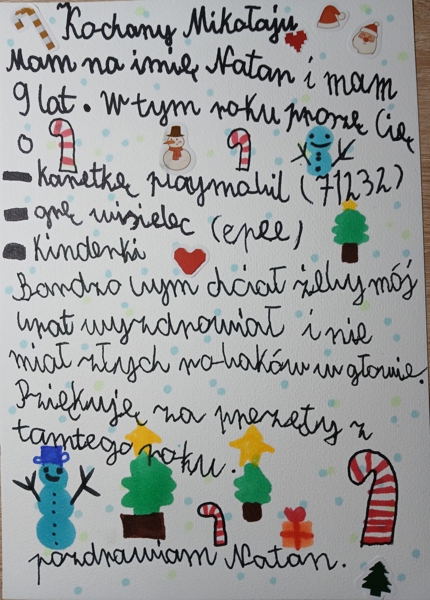 Kochany Mikołaju
Mam na imię Natan i mam
9 lat. W tym roku proszę Cię
o
karetkę playmobil (71232)
grę wisielec (epee)
Kinderki
Bardzo bym chciał żeby mój
brat wyzdrowiał i nie
miał złych robaków w głowie.
Dziękuję za prezęty z
tamtego roku.
pozdrawiam Natan.